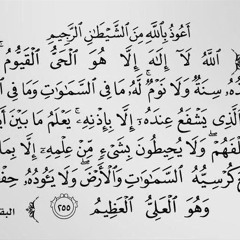 أَعُوذُ بِٱللَّهِ مِنَ ٱلشَّيْطَٰنِ ٱلرَّجِيمِ
ٱللَّهُ لَآ إِلَٰهَ إِلَّا هُوَ ٱلْحَىُّ ٱلْقَيُّومُ ۚ
ـهُۥ سِنَةٌ وَلَا نَوْمٌ ۚ لَّهُۥ مَا فِى ٱلسَّمَٰوَٰتِ وَمَا فِى
ٱلَّذِى يَشْفَعُ عِندَهُۥٓ إِلَّا بِإِذْنِهِۦ ۚ يَعْلَمُ مَا بَيْنَ أَيـ
ـلْفَهُمْ ۖ وَلَا يُحِيطُونَ بِشَىْءٍ مِّنْ عِلْمِهِۦٓ إِلَّا بِمَا
كُرْسِيُّهُ ٱلسَّمَٰوَٰتِ وَٱلْأَرْضَ ۖ وَلَا يَـُٔودُهُۥ حِفْـ
وَهُوَ ٱلْعَلِىُّ ٱلْعَظِيمُ ٢٥٥ البقـ